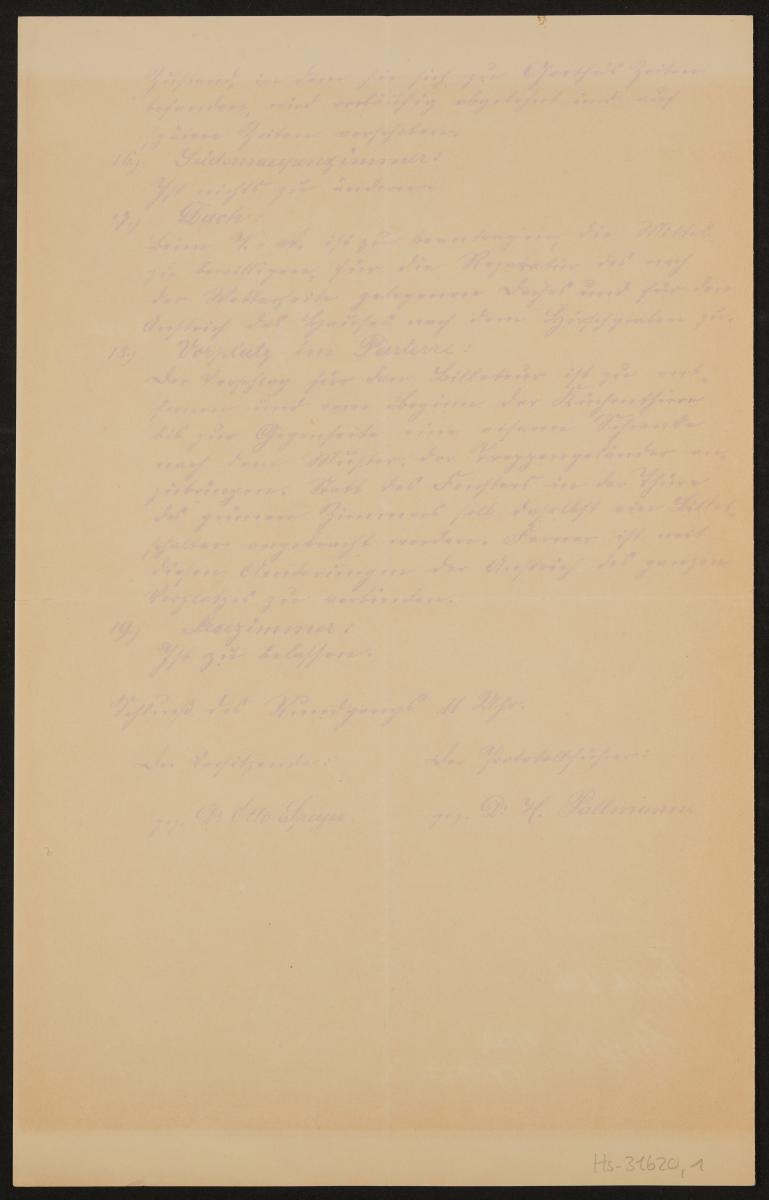 Zustand, in dem sie sich zu Goethes Zeiten
befunden, wird vorläufig abgelehnt und auf
spätere Zeiten verschoben.
16.) Südmansardenzimmer:
Ist nichts zu ändern.
17.) Dach:
Beim ist zu beantragen, die Mittel
zu bewilligen, für die Reparatur des nach
der Wetterseite gelegenen Daches und für den
Anstrich des Hauses nach dem Hirschgraben zu.
18.) Vorplatz im Parterre:
Der Verschlag für den Billeteur ist zu ent-
fernen und vom Beginn der Küchenthüre
bis zur Gegenseite eine eiserne Schranke
nach dem Muster der Treppengeländer an-
zubringen. Statt des Fensters in der Thüre
des grünen Zimmers soll daselbst ein Billet-
schalter angebracht werden. Ferner ist mit
diesen Aenderungen der Anstrich des ganzen
Vorplatzes zu verbinden.
19.) zimmer:
Ist zu belassen.
Schluß des Rundgangs 11 Uhr.
Der Vorsitzende: Der Protokollführer:
gez. Dr Otto gez. Dr. H. Pallmann
Hs-31620,1